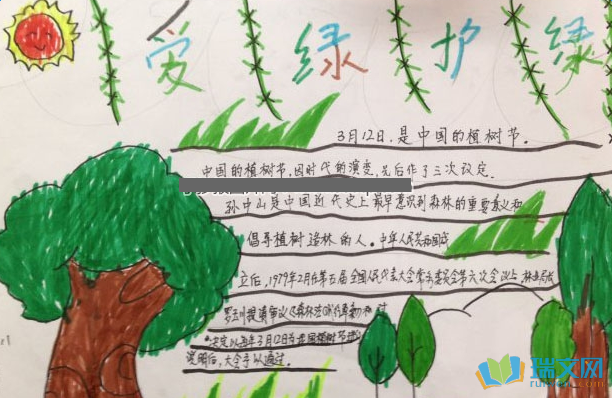 爱绿护绿
3月12日,是中国的植树节。
中国的植树节,因时代的演变,先后作了三次改定。
孙中山是中国近代史上最早意识到森林的重要意义和
倡导植树造林的人。中华人民共和国成
立后,1979年2月在第五届全国人民代表大会常务委员会第六次会议上
提请审议《森林法
决定以每年3月12日为我国植树节
说明后,大会予以通过。
瑞文网